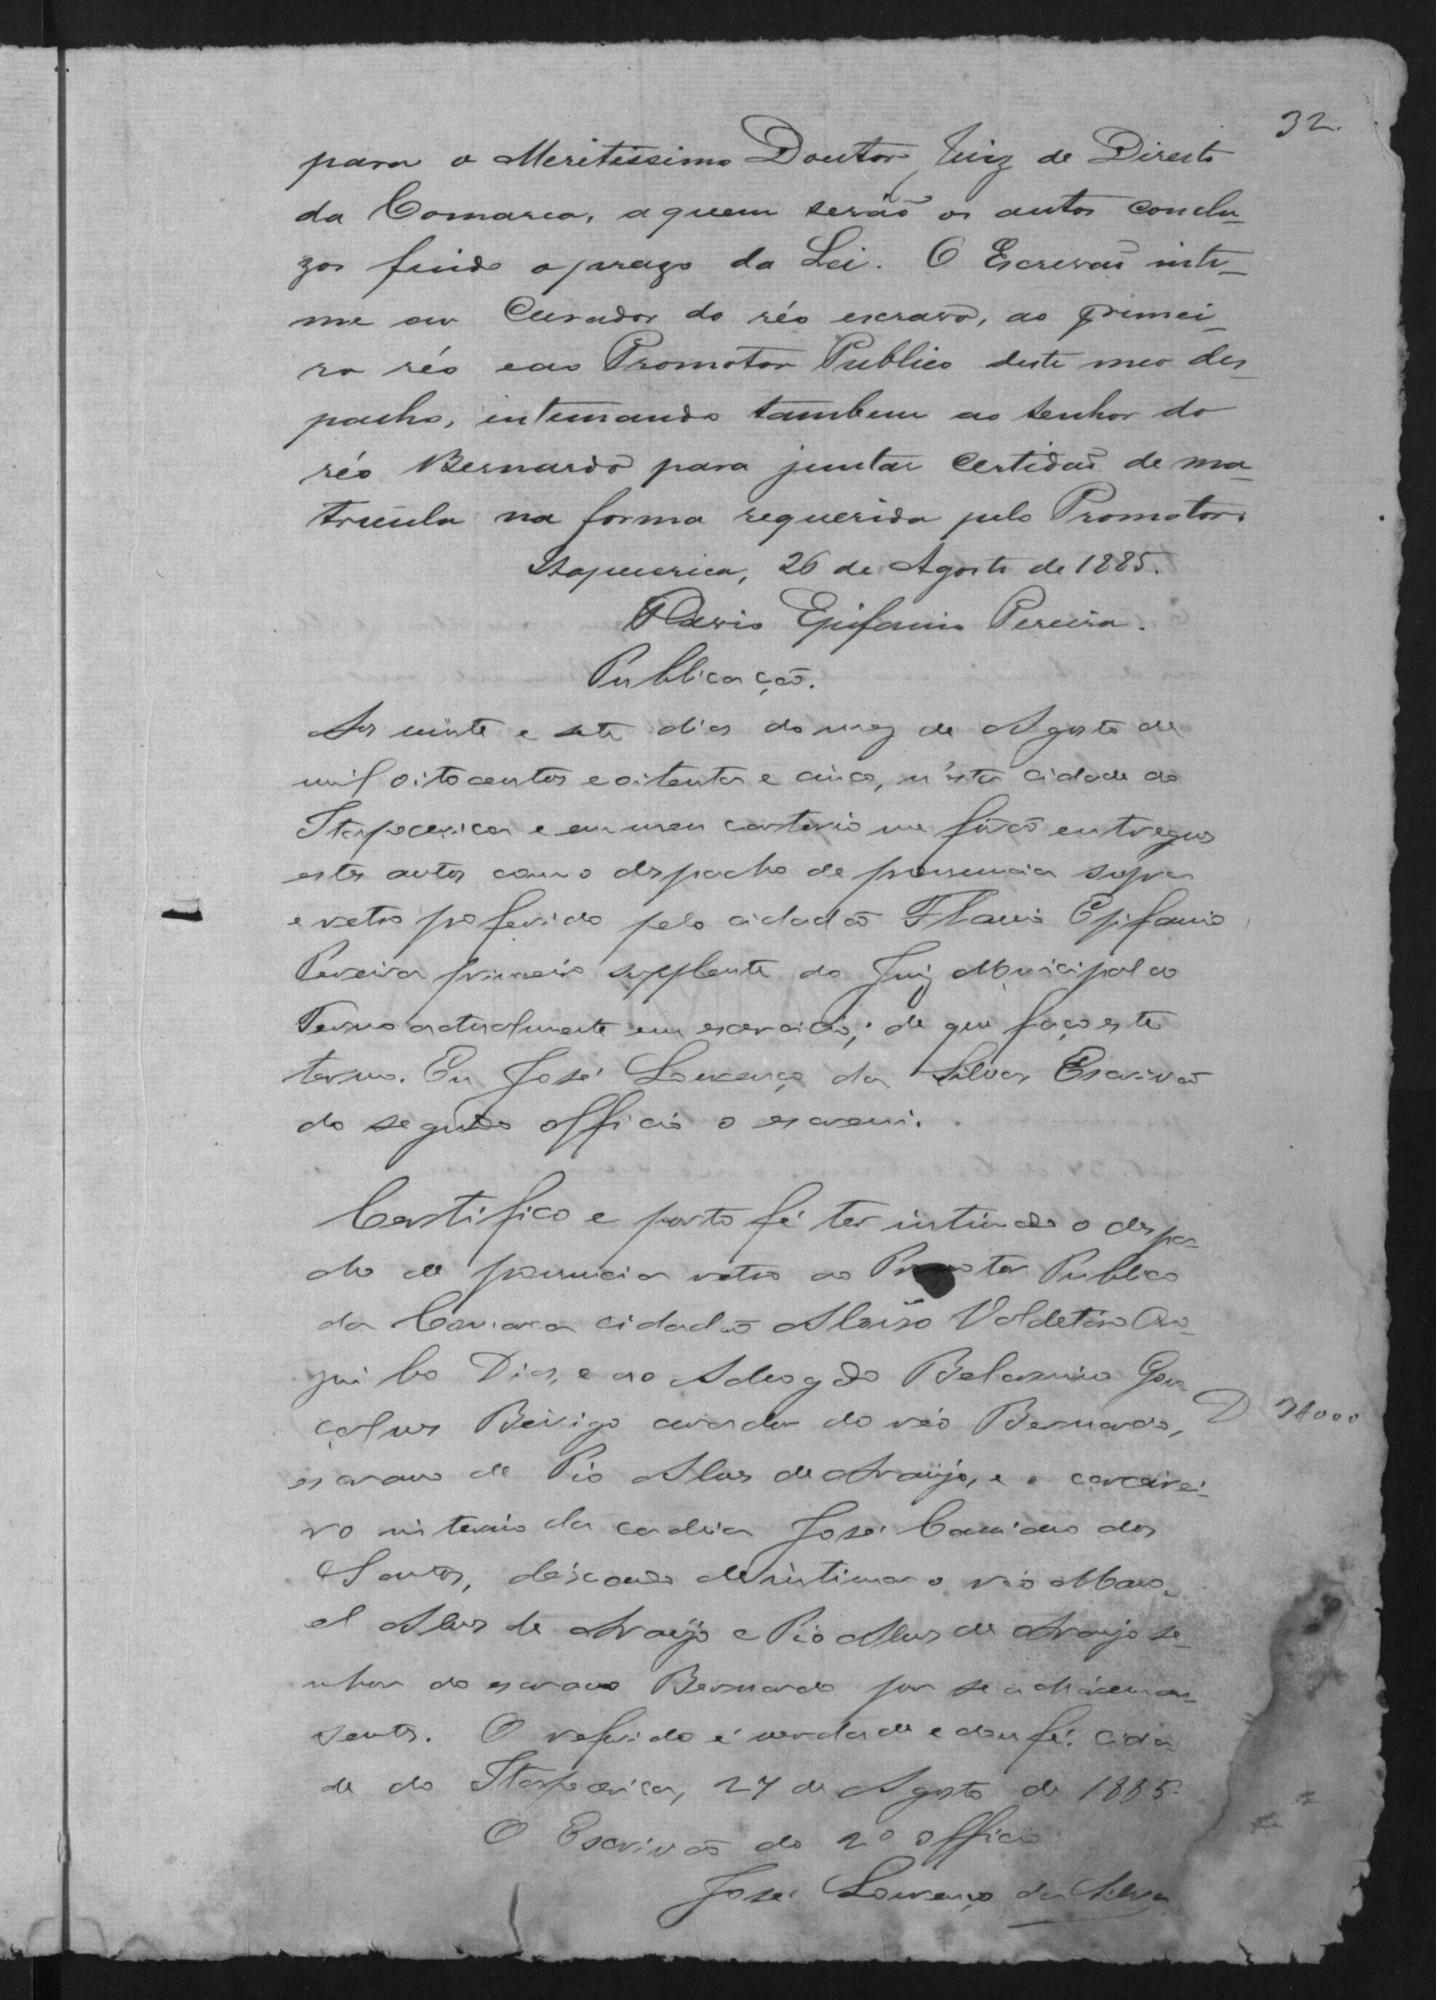 32.
para o Meritissimo Doutor Juiz de Direito
da Comarca, a quem serão os autos conclu-
zos findo o prazo da Lei. O Escrivão inti-
me ao Curador do réo escravo, ao primei-
ro réo e ao Promotor Publico deste meo des-
pacho, intimando tambem ao senhor do
réo Bernardo para juntar Certidão de ma-
tricula na forma requerida pelo Promotor.
Itapecerica, 26 de Agosto de 1885.
Flavio Epifanio Pereira.
Publicação.
Aos vinte e sete dias do mez de Agosto de
mil oitocentos e oitenta e cinco, n'esta cidade do
Itapecerica e em meu cartorio me forão entregues
estes autos com o despacho de pronuncia supra
e retro proferido pelo cidadão Flavio Epifanio
Pereira primeiro supplente do Juiz Municipal do
Termo actualmente em exercicio; de que faço este
termo. Eu José Lourenço da Silva Escrivão
do segundo officio o escrevi.
Certifico e porto fé ter intimado o despa-
cho de pronuncia retro ao Promotor Publico
da Comarca cidadão Aloiso Valdetaro
Dias, e ao Advogado Belarmino Gon-
çalves curador do réo Bernardo,
escravo de Pio Alves de Araújo, e o carcerei-
ro interino da cadeia José Caminno dos
Santos, deixando de intimar o réo Mano-
el Alves de Araújo e Pio Alves de Araujo se-
nhor do escravo Bernardo por se acharem au-
sentes. O referido é verdade e dou fé. Cida-
de do Itapecerica, 27 de Agosto de 1885.
O Escrivão do 2º officio
José Lourenço da Silva